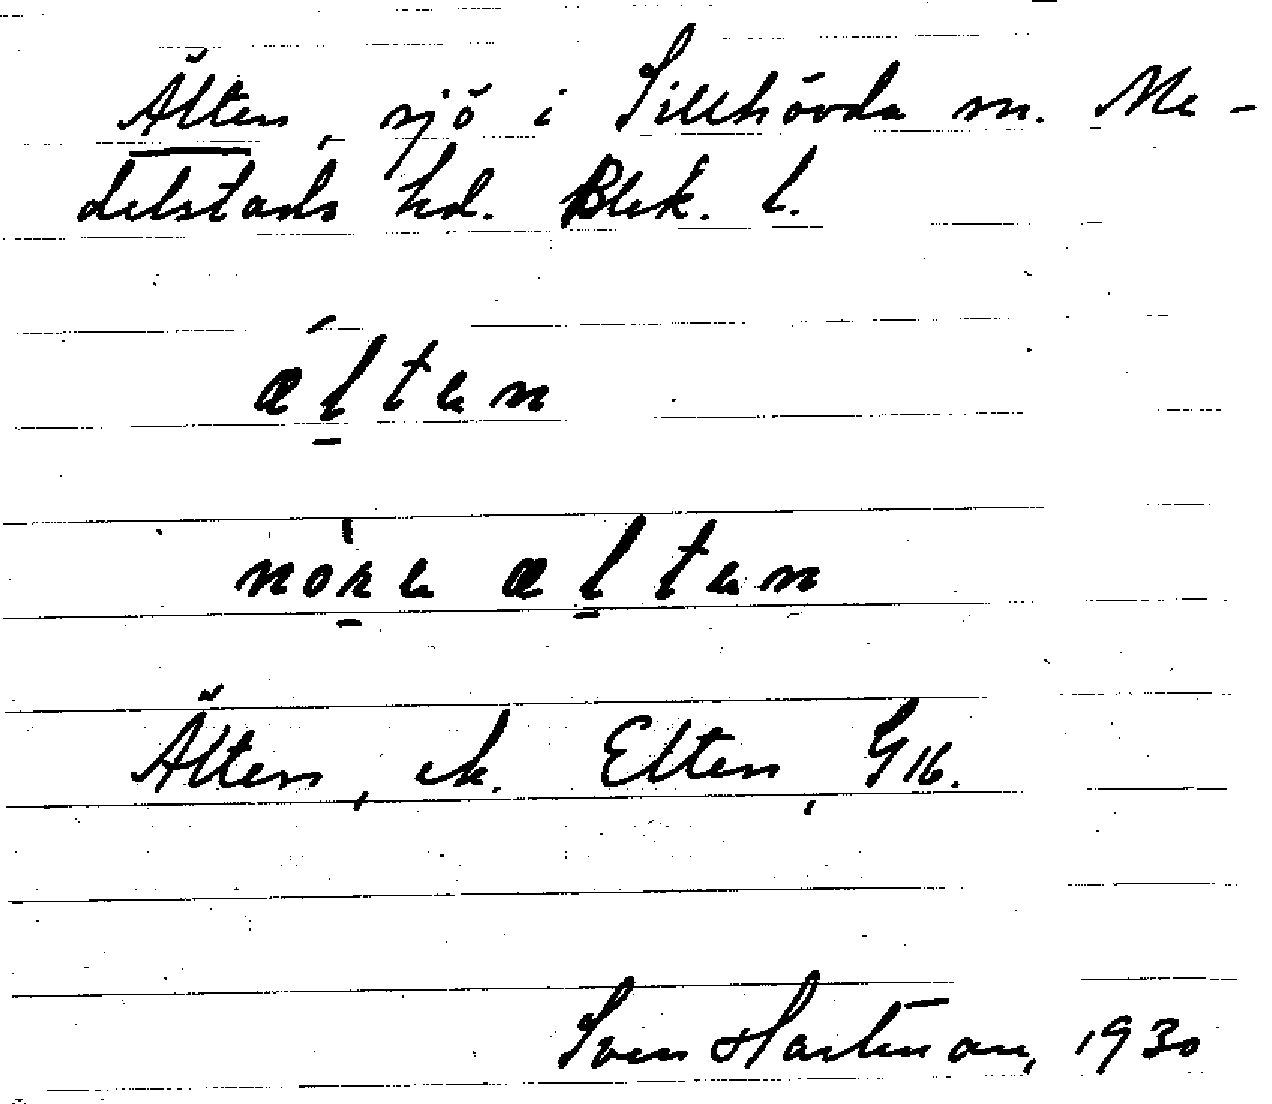 Älten, sjö i Sillhövda sn. Me-
delstads hd. Blek. l.
ältan
nöra ältan
Älten, ek. Elten, G16.
Sven Hartman, 1930